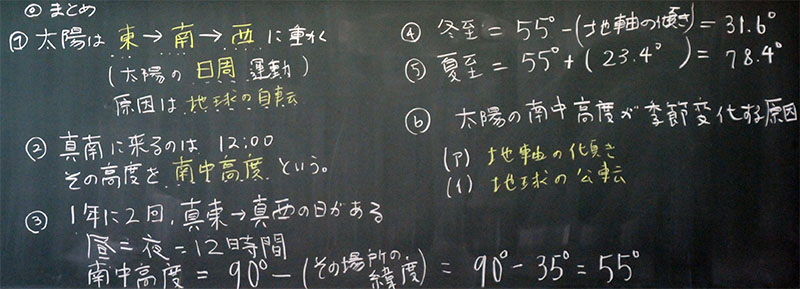 ◎ まとめ
① 太陽は 東→南→西 に動く
(太陽の 日周 運動)
原因は 地球の自転
② 真南に来るのは 12:00
その高度を 南中高度 という。
③ 1年に2回,真東→真西の日がある
昼=夜=12時間
南中高度 = 90°-(その場所の緯度) = 90°-35°=55°
④ 冬至 = 55°-(地軸の傾き) = 31.6°
⑤ 夏至 = 55°+(23.4°) = 78.4°
⑥ 太陽の南中高度が季節変化する原因
(ア) 地軸の傾き
(イ) 地球の公転